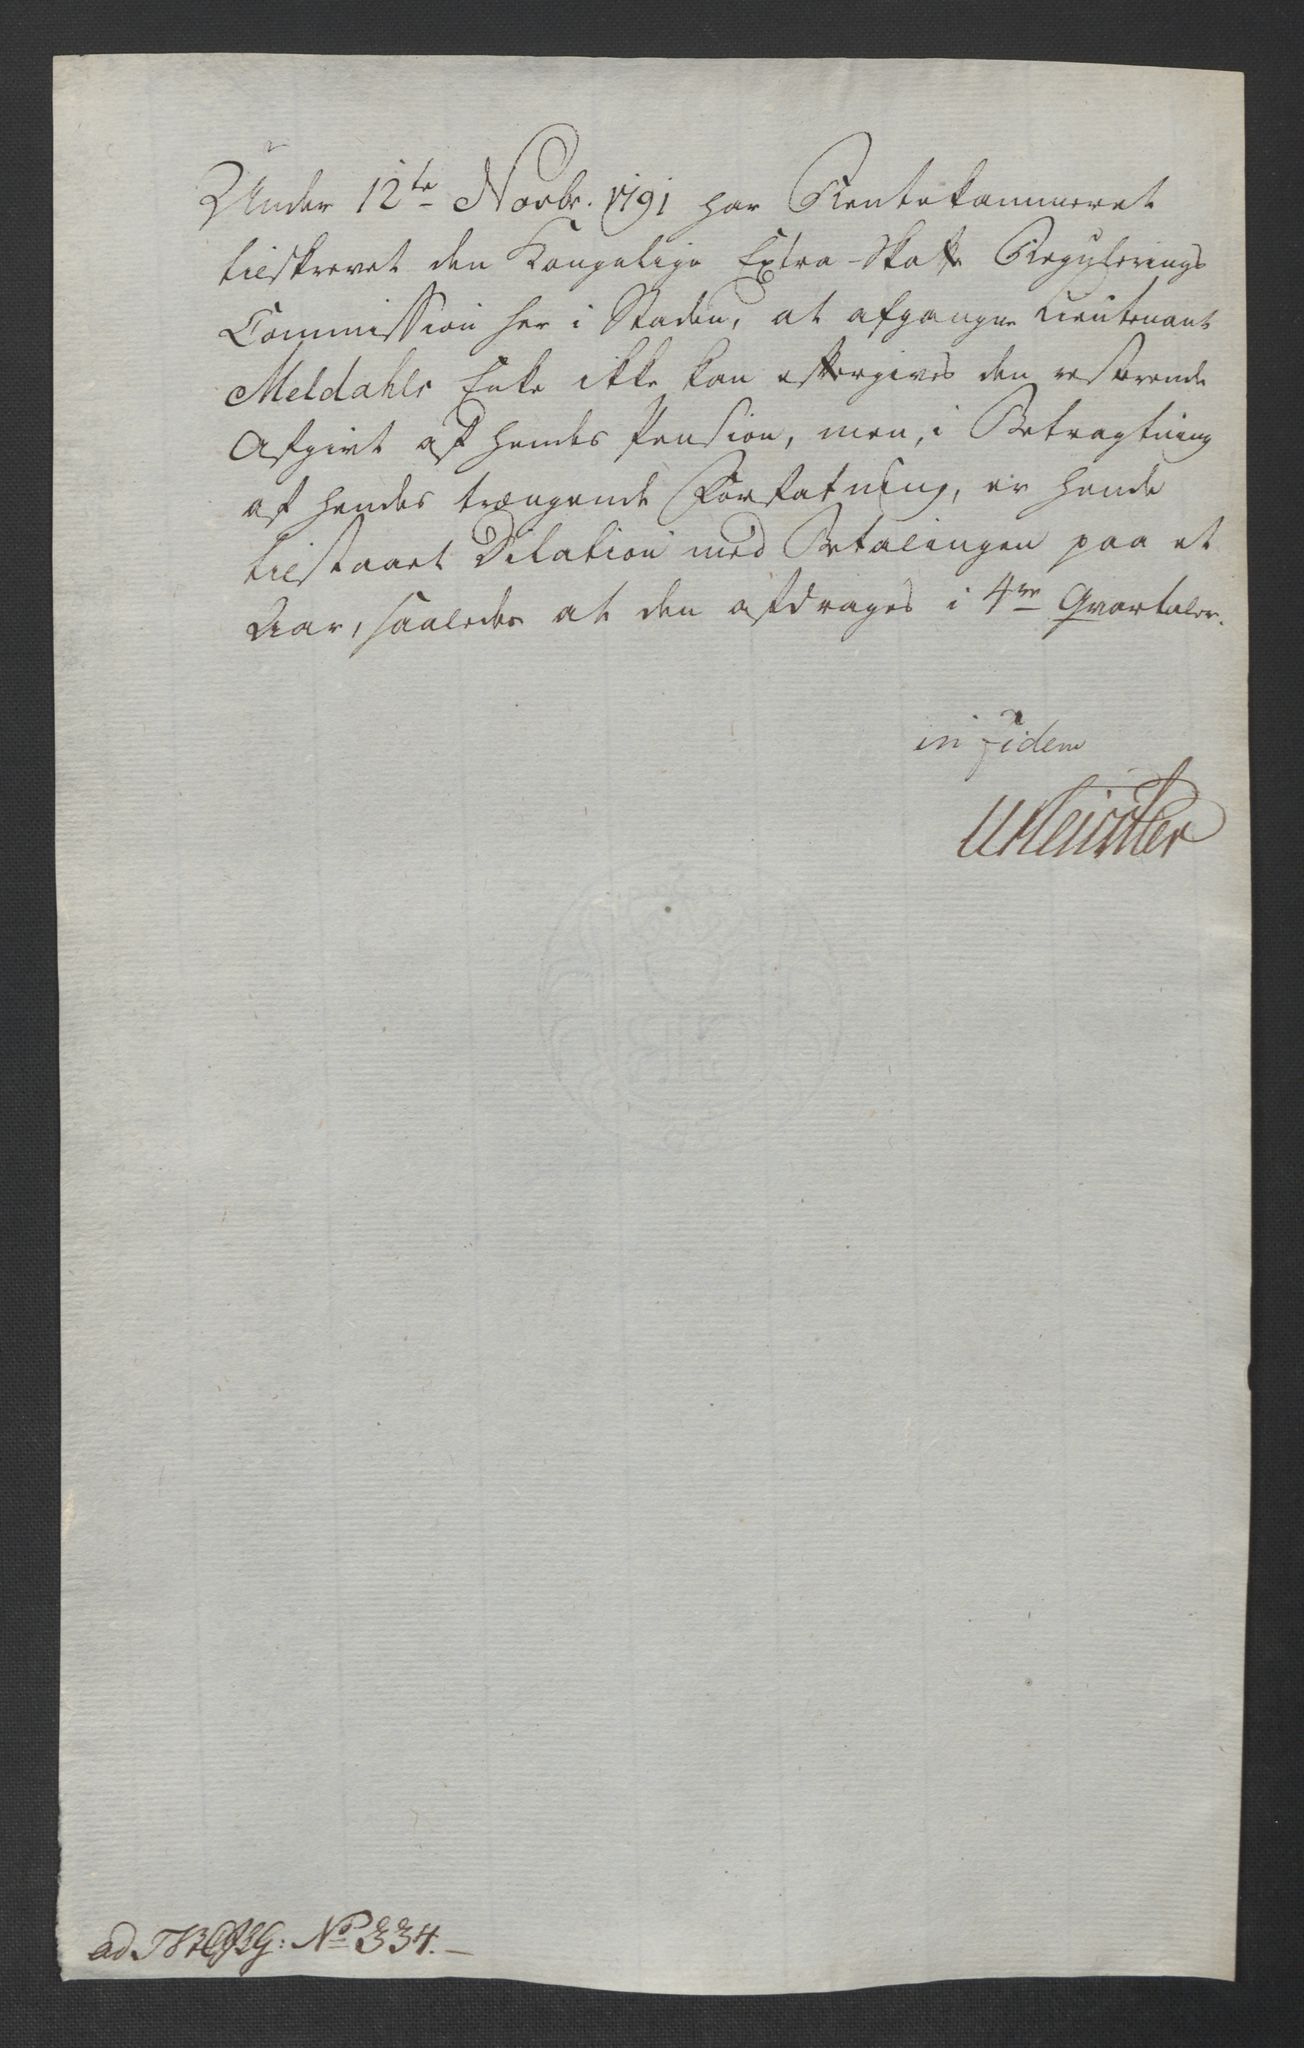 Under 12te Novbr. 1791 har Rentekammeret
tilskrevet den Kongelige Extra-Skatte Regulerings
Commission her i Staden, at afgangne Lieutenant
Meldahls Enke ikke kan eftergives den resterende
Afgivt af hendes Pension, men, i Betragtning
af hendes trængende Forfatning, er hende
tilstaaet Dilation med Betalingen paa et
Aar, saaledes at den afdrages i 4re Qvartaler.
in fidem
ad No 334.